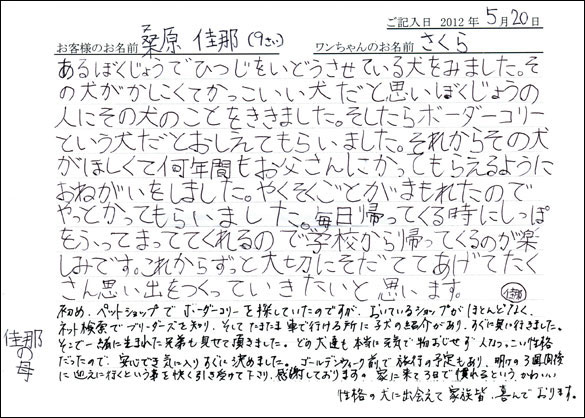 ご記入日 2012年 5月20日
お客様のお名前 桑原 佳那 (9さい) ワンちゃんのお名前 さくら
あるぼくじょうでひつじをいどうさせている犬をみました。そ
の犬がかしこくてかっこいい犬だと思いぼくじょうの
人にその犬のことをききました。そしたらボーダーコリー
という犬だとおしえてもらいました。それからその犬
がほしくて何年間もお父さんにかってもらえるように
おねがいをしました。やくそくごとがまもれたので
やっとかってもらいました。毎日帰ってくる時にしっぽ
をふってまっててくれるので学校から帰ってくるのが楽
しみです。これからずっと大切にそだててあげてたく
さん思い出をつくっていきたいと思います。 佳那
初め、ペットショップでボーダーコリーを探していたのですが、おいているショップがほとんどなく、
ネット検索でブリーダーズを知り、そしてたまたま車で行ける所に子犬の紹介があり、すぐに見に行きました。
そこで一緒に生まれた兄弟も見せて頂きました。どの犬達も本当に元気で物おじせず人なつっこい性格
だったので、安心でき気に入りすぐに決めました。ゴールデンウィーク前で旅行の予定もあり、明けの3週間後
に迎えに行くという事を快く引き受けて下さり、感謝しております。家に来て3日で慣れるという、かわいい
性格の犬に出会えて家族皆、喜んでおります。
佳那の母